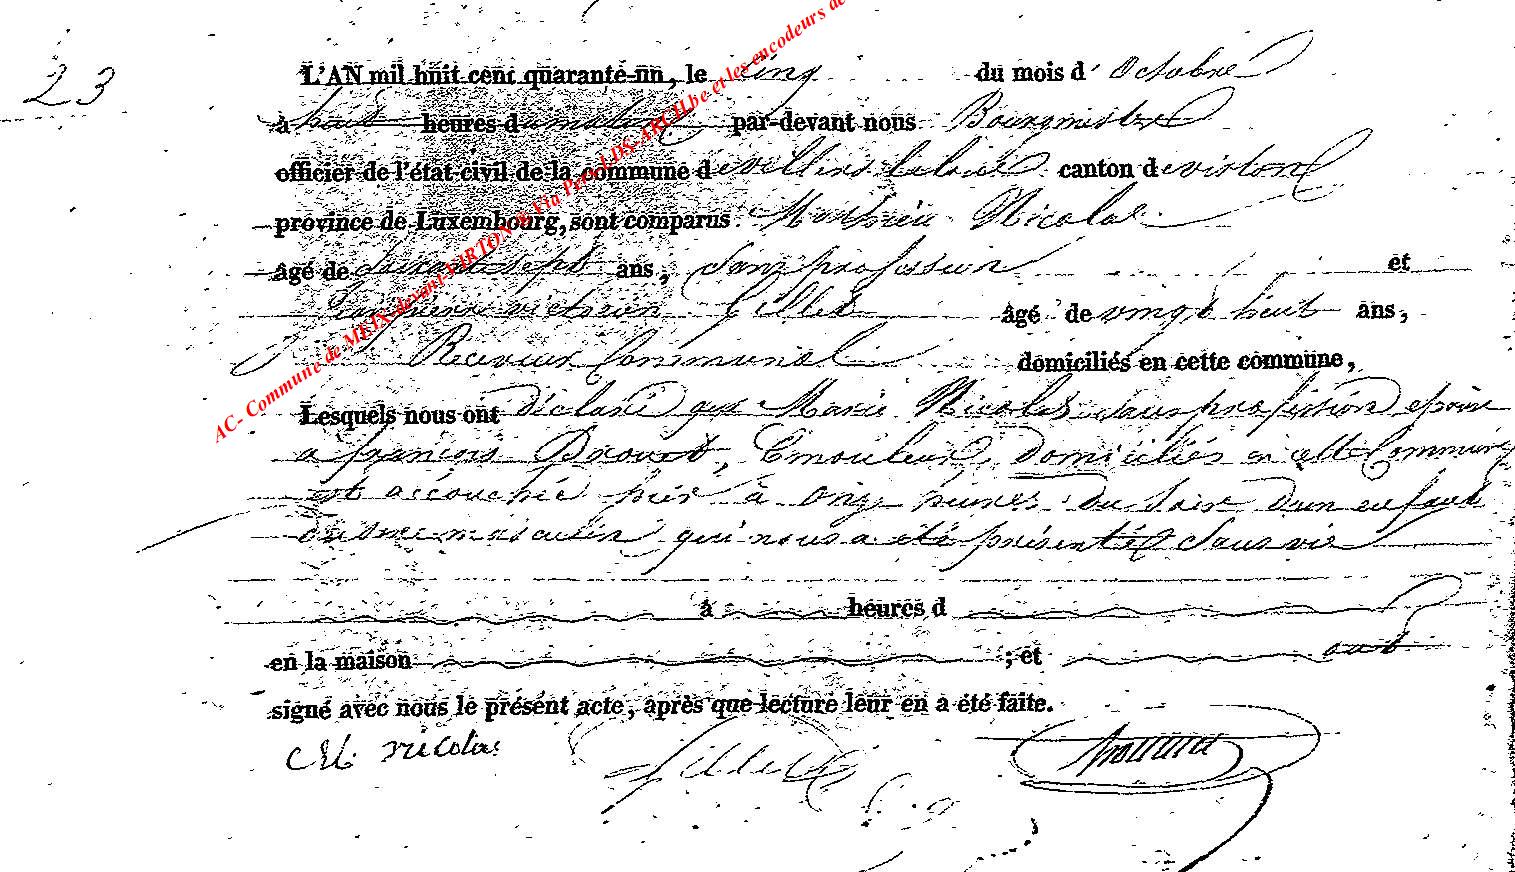 23
L'AN mil huit cent quarante-un, le cinq du mois d' Octobre
à huit heures du matin par-devant nous Bourgmestre
officier de l'état-civil de la commune de villers laloue canton de virton
province de Luxembourg, sont comparus Mathieu Nicolas
âgé de sept ans, sans profession et
victorien Gilles âgé de vingt huit ans,
Receveur Communal domiciliés en cette commune,
Lesquels nous ont déclaré que Marie Nicolas sans profession épouse
a françois Proust, Emouleur, domiciliés en cette Commune
est accouchée hier à onze heures du soir d'un enfant
du sexe masculin qui nous a été présenté sans vie
à heures d
en la maison ; et ont
signé avec nous le présent acte, après que lecture leur en a été faite.
M. nicolas Gilles
AC- Commune de MEIX-devant-VIRTON - Via Pro-LDS-ARCH.be et les encodeurs de